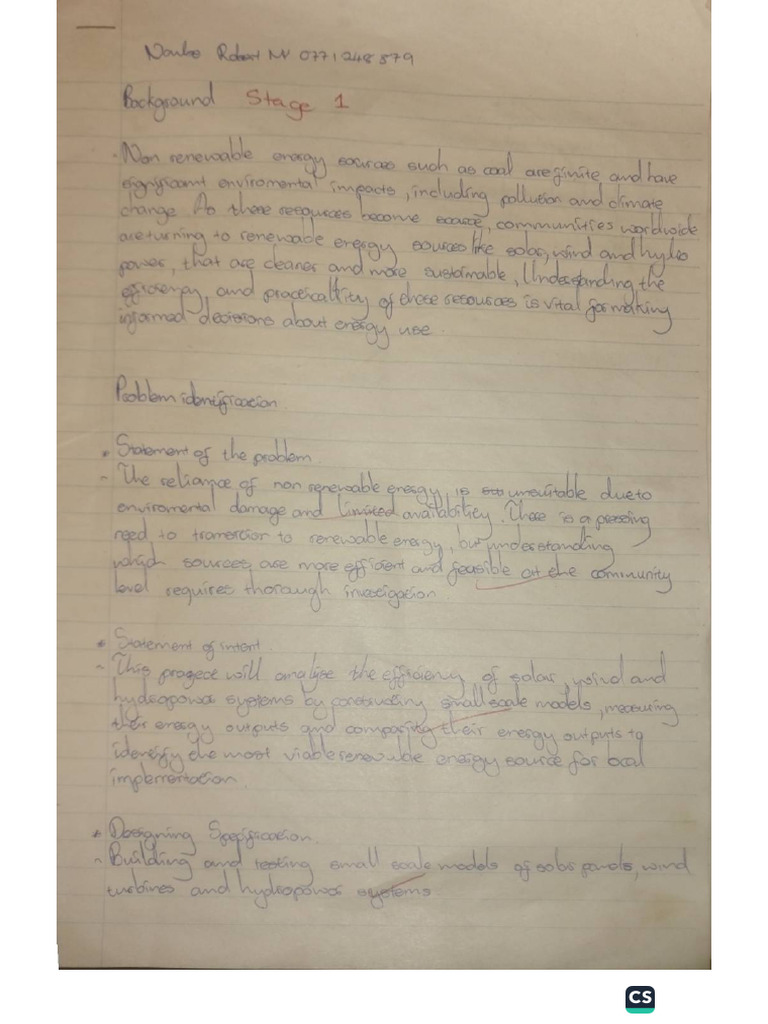 Robert Mr 0771248579
Background Stage 1
- Non renewable energy sources such as coal are finite and have
significant enviromental impacts, including pollution and climate
change. As these resources become scarce, communities worldwide
are turning to renewable energy sources like solar, wind and hydro
power, that are cleaner and more sustainable, Understanding the
efficiency, and practicality of these resources is vital for making
informed decisions about energy use.
Problem identification
• Statement of the problem
- The reliance of non renewable energy, is due to
enviromental damage and limited availability. There is a pressing
need to to renewable energy, but understanding
which sources are more efficient and feasible at the community
level requires thorough investigation.
• Statement of intent.
- This project will analyse the efficieny of solar, wind and
hydropower systems by constructing small scale models, measuring
their energy outputs and comparing their energy outputs to
identify the most viable renewable energy source for local
implementation.
• Designing Specification.
- Building and testing small scale models of solar panels, wind
turbines and hydropower systems
CS